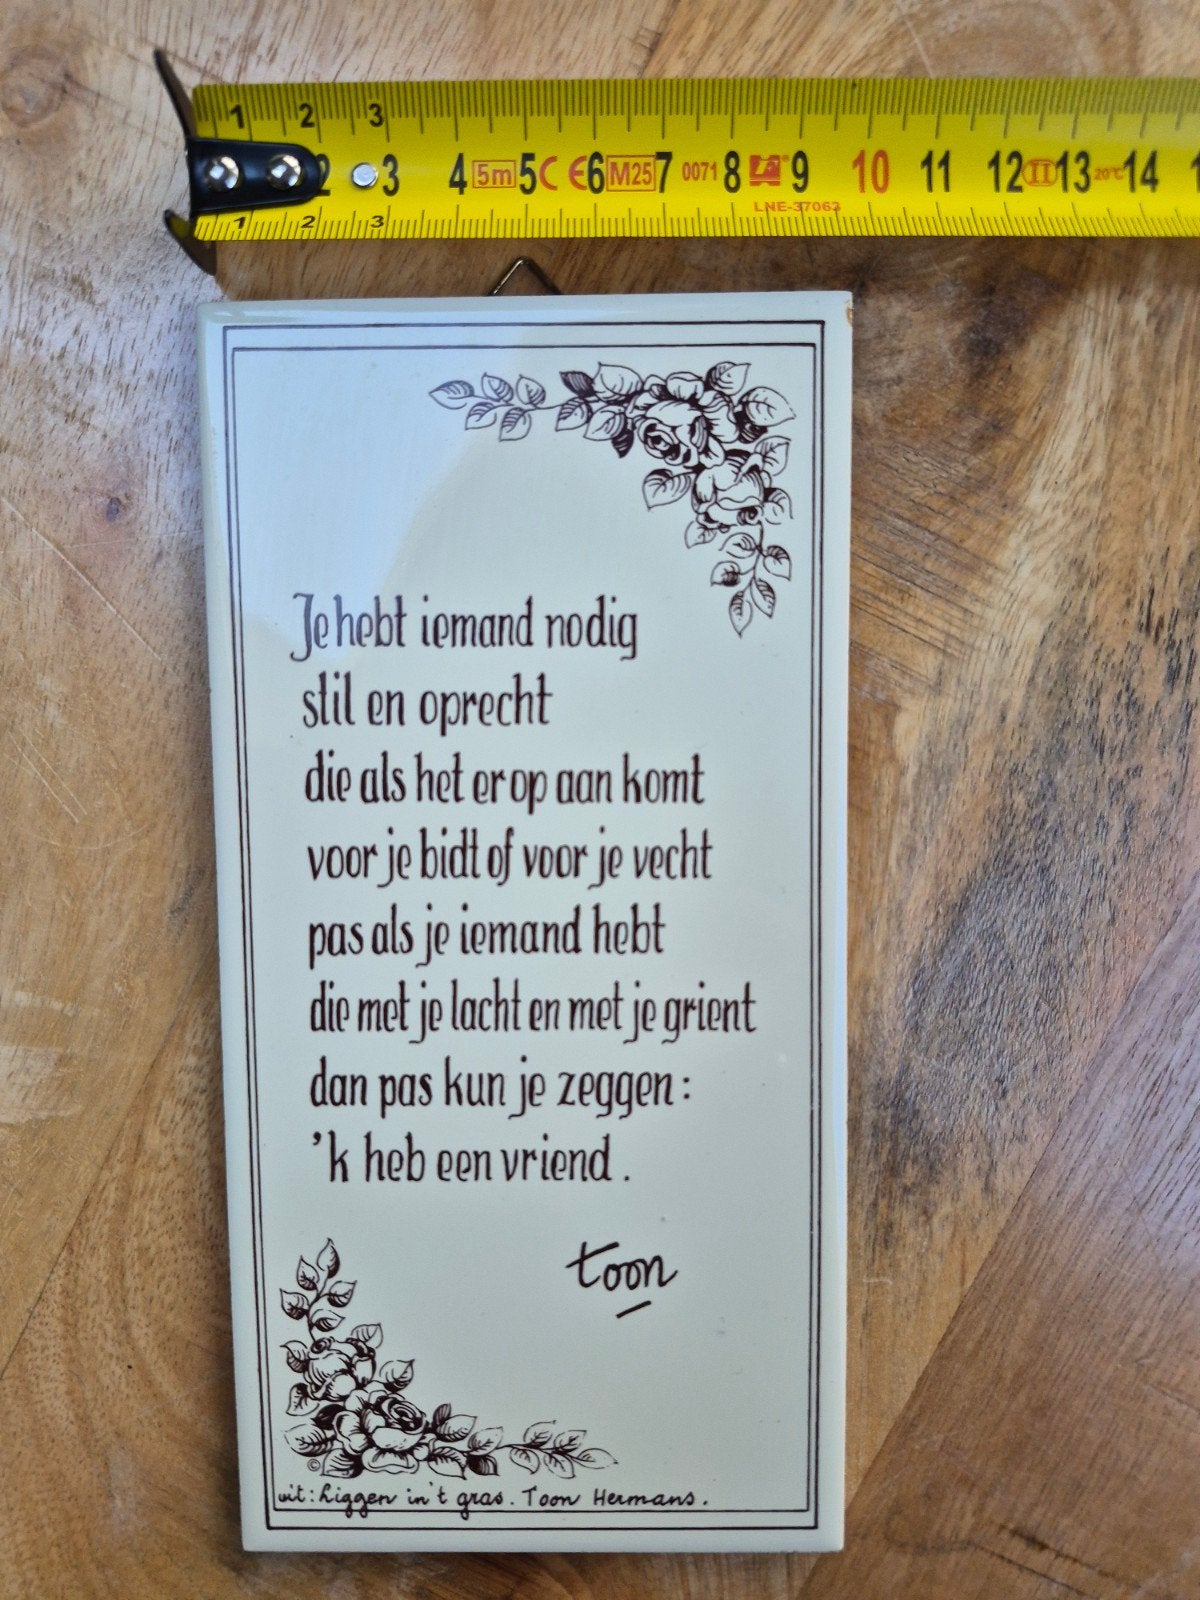 1 2 3
2 3 4 5m 5 C € 6 M25 7 0071 8 9 10 11 12 II 13 20°C 14
LNE-37063
1 2 3
Je hebt iemand nodig
stil en oprecht
die als het er op aan komt
voor je bidt of voor je vecht
pas als je iemand hebt
die met je lacht en met je grient
dan pas kun je zeggen:
'k heb een vriend.
toon
©
uit: Liggen in 't gras. Toon Hermans.